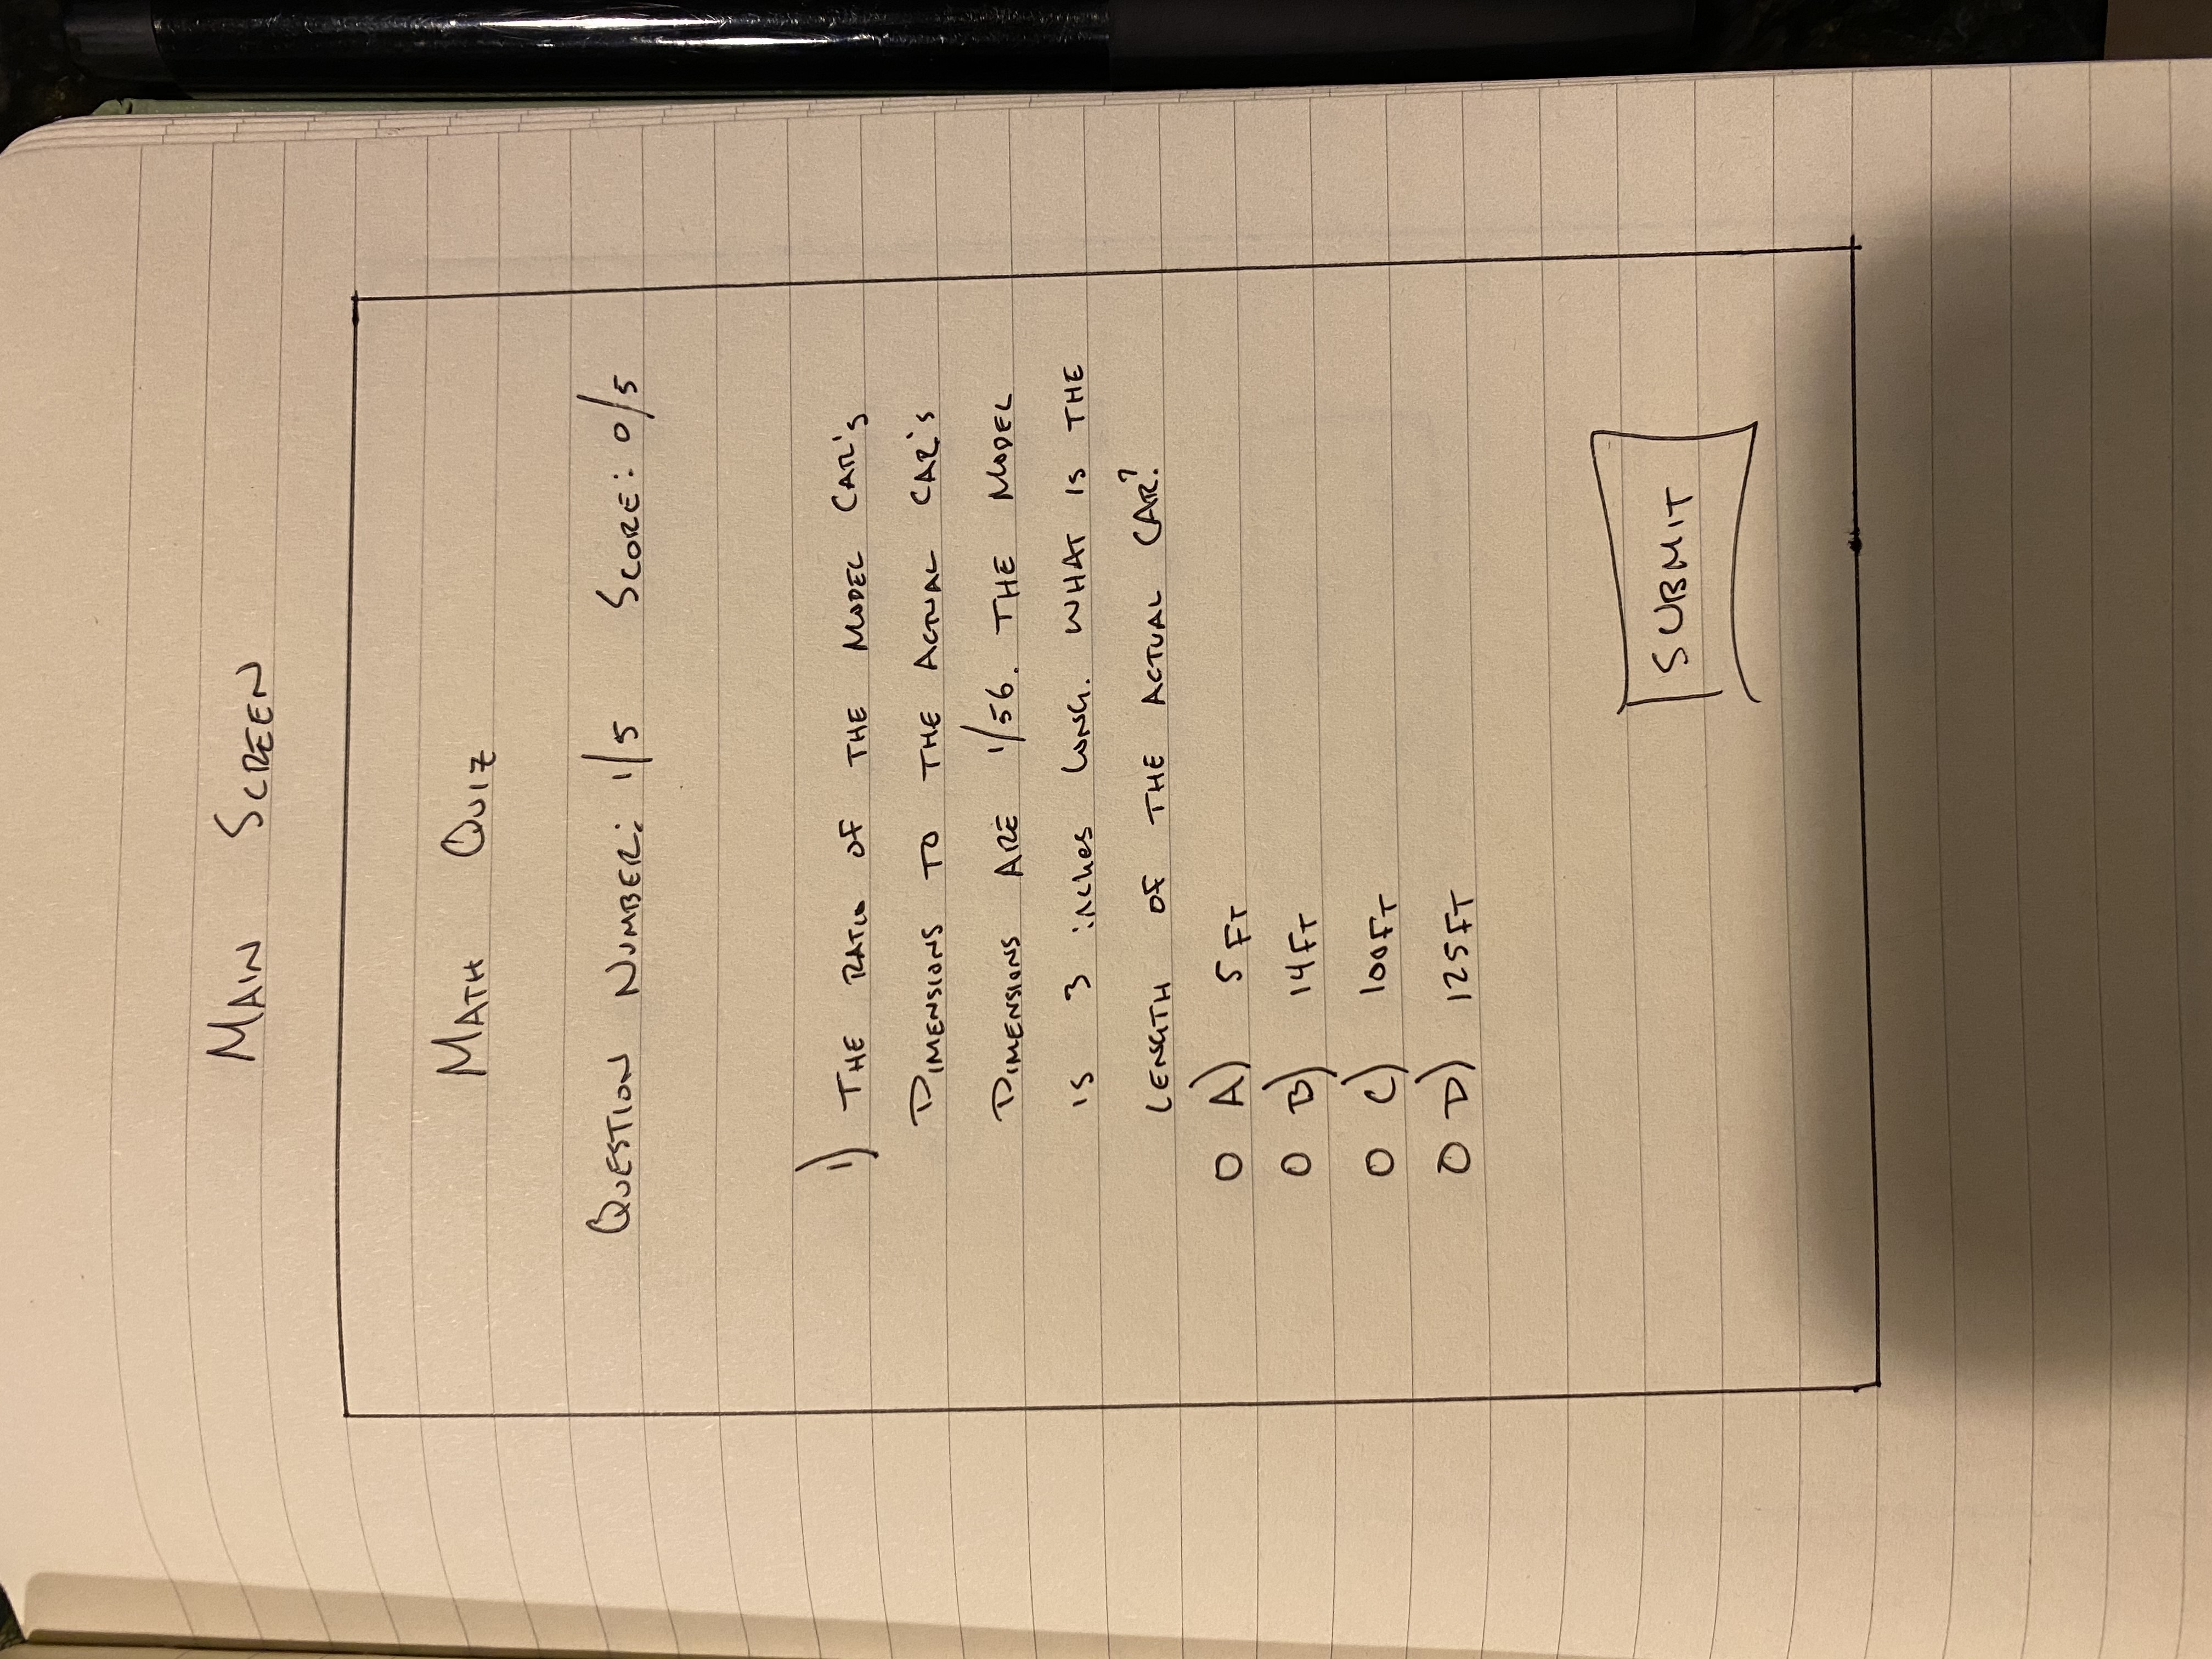 MAIN SCREEN
MATH QUIZ
QUESTION NUMBER: 1/5 SCORE: 0/5
1) THE RATIO OF THE MODEL CAR'S
DIMENSIONS TO THE ACTUAL CAR'S
DIMENSIONS ARE 1/56. THE MODEL
IS 3 inches LONG. WHAT IS THE
LENGTH OF THE ACTUAL CAR?
O A) 5 FT
O B) 14 FT
O C) 100 FT
O D) 125 FT
SUBMIT